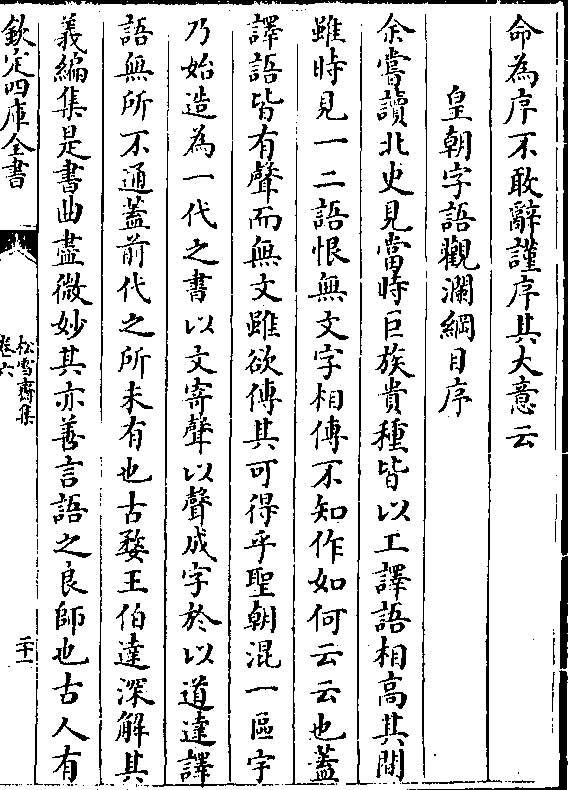 命為序不敢辭謹序其大意云
皇朝字語觀瀾綱目序
余嘗讀北史見當時巨族貴種皆以工譯語相高其間
雖時見一二語恨無文字相傳不知作如何云云也蓋
譯語皆有聲而無文雖欲傳其可得乎聖朝混一區宇
乃始造為一代之書以文寄聲以聲成字於以道達譯
語無所不通蓋前代之所未有也古婺王伯達深解其
義編集是書曲盡微妙其亦善言語之良師也古人有
欽定四庫全書
松雪齋集
卷六
二十一